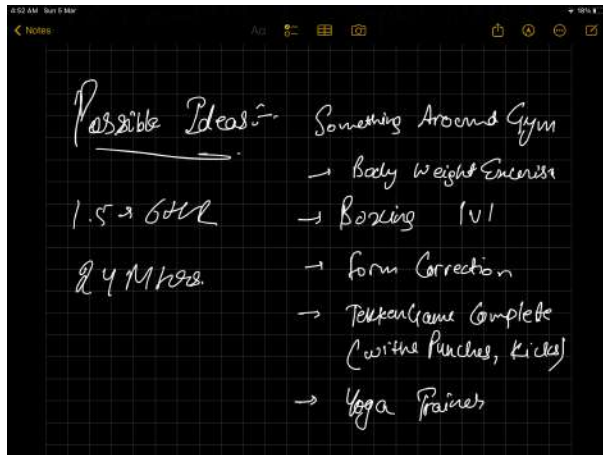 4:52 AM Sun 5 Mar
18%
Notes
Aa
Possible Ideas:-
Something Around Gym
→ Body Weight Excerise
→ Boxing 1v1
→ form Correction
→ Tekken Game Complete
(withe Punches, Kicks)
→ Yoga Trainer
1.5 →
24